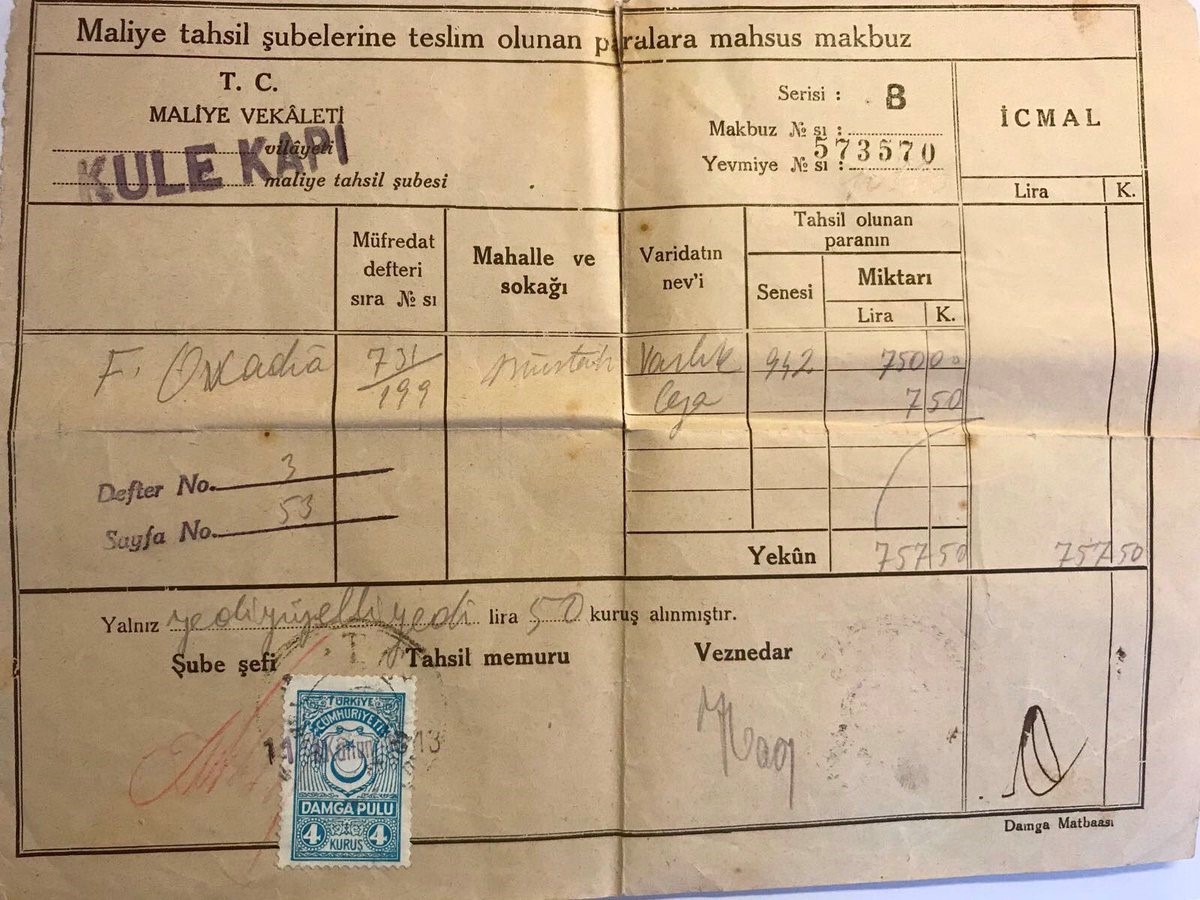 Maliye tahsil şubelerine teslim olunan paralara mahsus makbuz
T. C.
MALİYE VEKÂLETİ
vilâyeti
KULE KAPI
maliye tahsil şubesi
Serisi : B
Makbuz № sı :
573570
Yevmiye № sı :
İCMAL
Lira K.
Müfredat defteri sıra № sı
Mahalle ve sokağı
Varidatın nev'i
Tahsil olunan paranın
Senesi
Miktarı
Lira K.
F. 731/199 Varlık 942 750 00
Ceza 7 50
Defter No. 3
Sayfa No. 53
Yekûn 757 50 757 50
Yalnız yediyüzelliyedi lira 50 kuruş alınmıştır.
Şube şefi Tahsil memuru Veznedar
TÜRKİYE
CUMHURİYETİ
DAMGA PULU
4 KURUŞ 4
Damga Matbaası